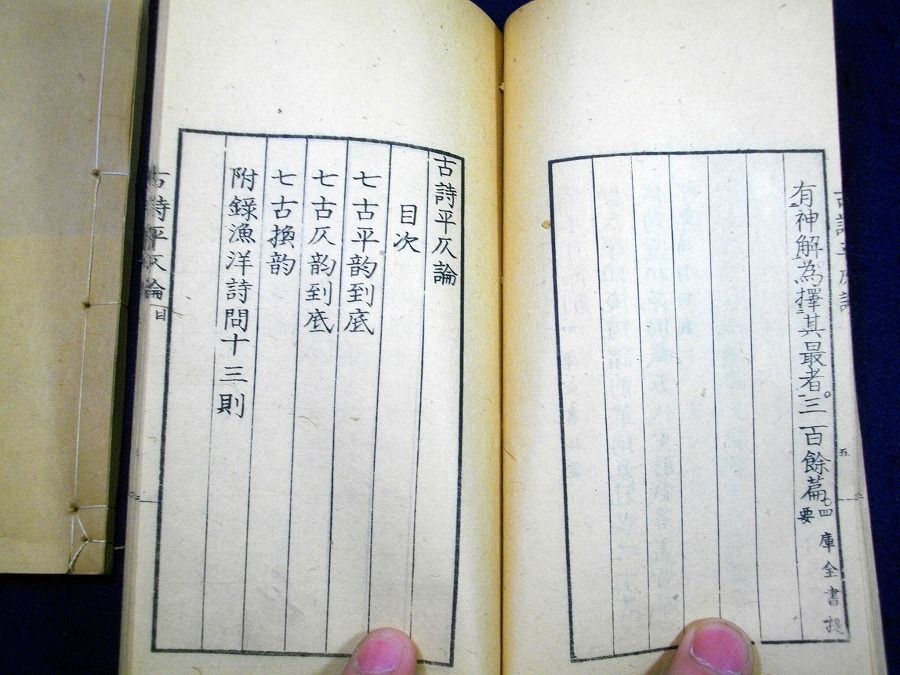 有神解為擇其最者三百餘篇。四庫全書提要
五
古詩平仄論
古詩平仄論
目次
七古平韵到底
七古仄韵到底
七古換韵
附錄漁洋詩問十三則
古詩平仄論
目